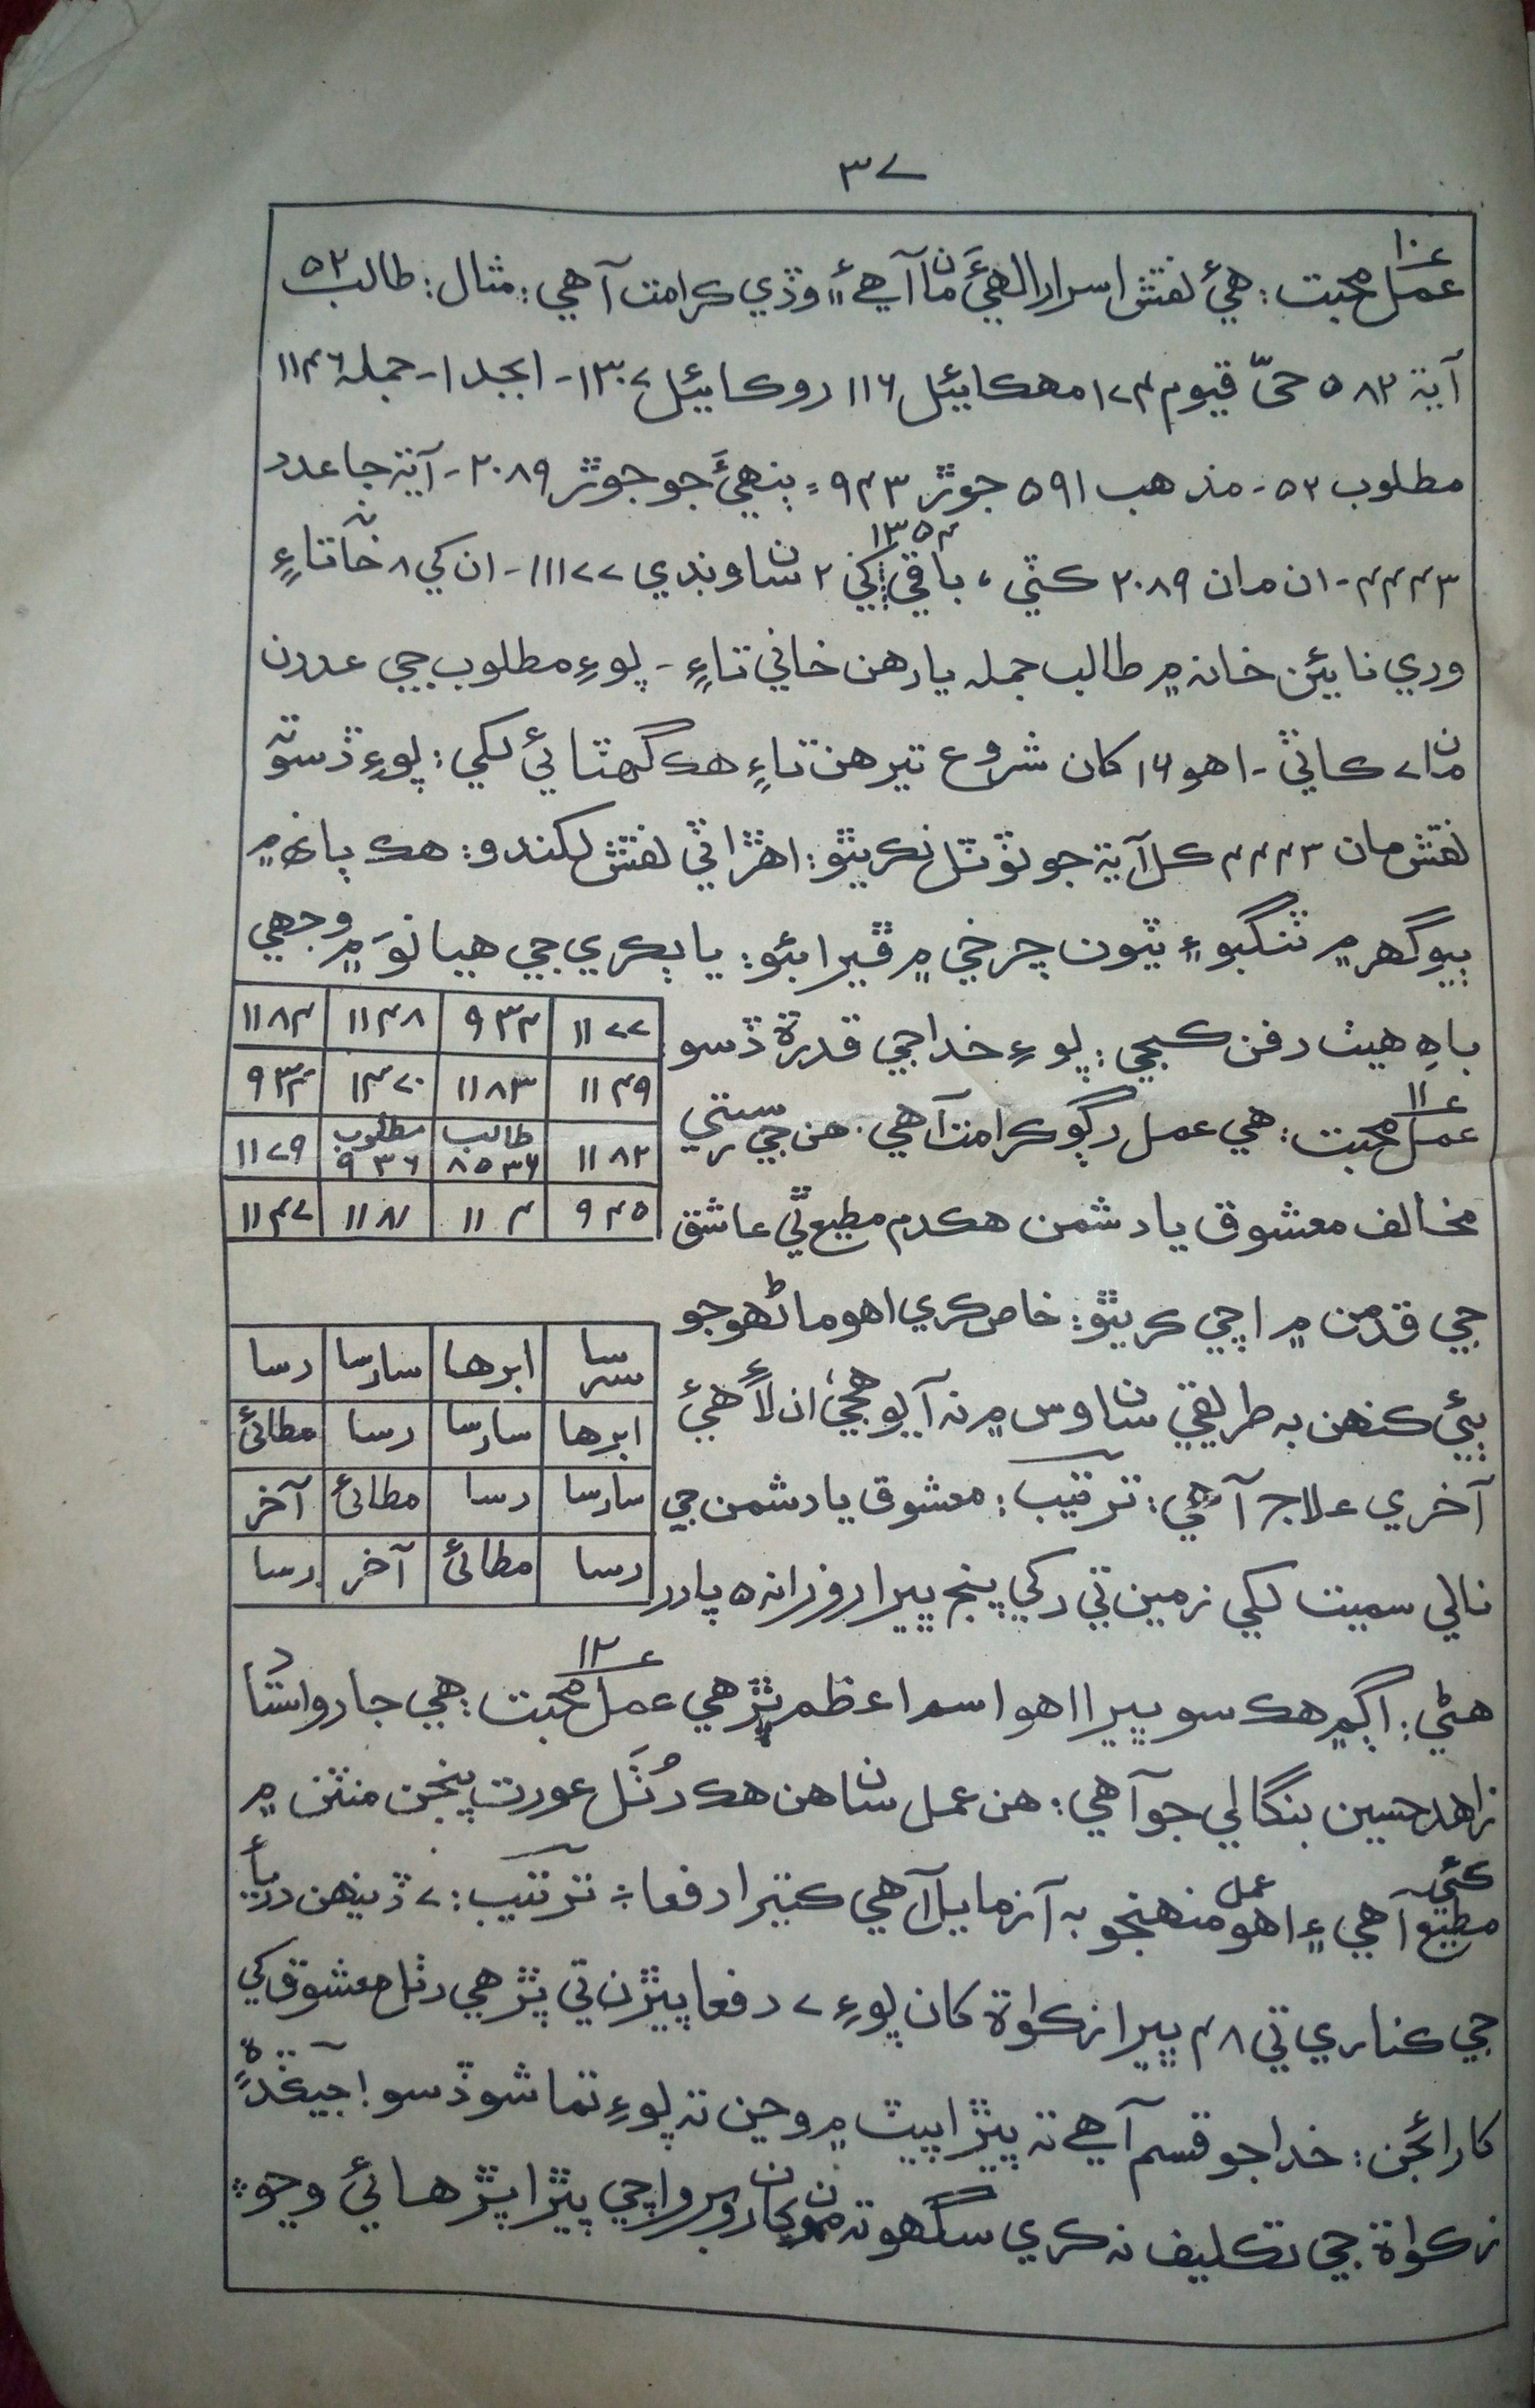 ٣٧
ع١٠
عمل محبت: هيءُ نقش اسرار الهيءَ مان آهي ۽ وڏي ڪرامت آهي: مثال: طالب ٥٢
آية ٥٨٢ حيّ قيوم ١٧٤ مهڪائيل ١١٦ روڪائيل ١٣٠٧- ابجد ١- جمله ١١٤٦
مطلوب ٥٢- مذهب ٥٩١ جوڙ ٩٤٣ = ٻنهيءَ جو جوڙ ٢٠٨٩- آية جا عدد
٤٤٤٣- ان مان ٢٠٨٩ ڪٽي، باقي ١٣٥٤ کي ٢ سان ونڊي ١١١٧٧- ان کي ٨ خانا تاءِ
وري نائين خانه ۾ طالب جمله يارهن خاني تاءِ- پوءِ مطلوب جي عددن
مان ٧ ڪاٽي- اهو ١٦ کان شروع تيرهن تاءِ هڪ گهٽائي لکي: پوءِ ڏسو ته
نقش مان ٤٤٤٣ ڪل آية جو ٽوٽل نڪريٿو: اهڙا ٽي نقش لکندو: هڪ ٻانهه ۾
ٻيو گهر ۾ ٽنگبو ۽ ٽيون چرخي ۾ ڦيرائبو: يا ٻڪري جي هيانوَ ۾ وجهي
باهِ هيٺ دفن ڪجي: پوءِ خدا جي قدرة ڏسو
١١٧٧ ٩٣٤ ١١٤٨ ١١٨٤
١١٤٩ ١١٨٣ ١٤٧٠ ٩٣٤
١١٨٢ طالب ٨٥٣٦ مطلوب ٩٣٦ ١١٧٩
٩٤٥ ١١٤ ١١٨١ ١١٤٧
ع١١
عمل محبت: هي عمل رڳو ڪرامت آهي. هن جي سٽي
مخالف معشوق يا دشمن هڪدم مطيع ٿي عاشق
جي قدمن ۾ اچي ڪريٿو: خاص ڪري اهو ماڻهو جو
ٻئي ڪنهن به طريقي سان وس ۾ نه آيو هجي، ان لاءِ هيءُ
آخري علاج آهي: ترتيب: معشوق يا دشمن جي
نالي سميت لکي زمين تي رکي پنج ڀيرا روزانه ٥ پادر
سرسا ابرها سارسا رسا
ابرها سارسا رسا مطائئ
سارسا رسا مطائئ آخر
رسا مطائئ آخر رسا
هڻي: اڳ ۾ هڪ سو ڀيرا اهو اسم اعظم پڙهي ع١٢ عمل محبت: هي جارو استاد
زاهد حسين بنگالي جو آهي: هن عمل سان هن هڪ رُٺل عورت پنجن منٽن ۾
مطيع ڪئي آهي ۽ اهو عمل منهنجو به آزمايل آهي ڪيترا دفعا: ترتيب: ٧ ڏينهن درياءَ
جي ڪناري تي ٤٨ ڀيرا زڪواة کان پوءِ ٧ دفعا پيڙن تي پڙهي رٺل معشوق کي
کارائجن: خدا جو قسم آهي ته پيڙا پيٽ ۾ وڃن ته پوءِ تماشو ڏسو! جيڪڏهن
زڪواة جي تڪليف نه ڪري سگهو ته مون کان روبرو اچي پيڙا پڙهائي وڃو: